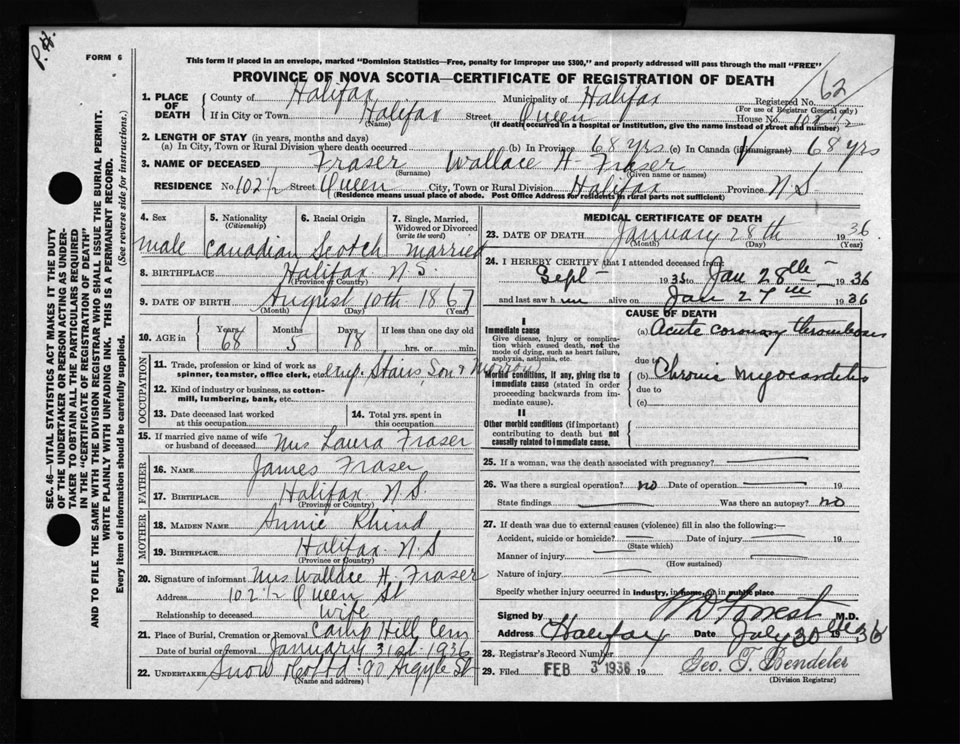 P.H.
FORM 6
This form if placed in an envelope, marked "Dominion Statistics—Free, penalty for improper use $300," and properly addressed will pass through the mail "FREE"
PROVINCE OF NOVA SCOTIA—CERTIFICATE OF REGISTRATION OF DEATH
62
1. PLACE OF DEATH County of Halifax Municipality of Halifax Registered No.
(For use of Registrar General only)
If in City or Town Halifax Street Queen House No. 102 1/2
(Name) (If death occurred in a hospital or institution, give the name instead of street and number)
2. LENGTH OF STAY (in years, months and days)
(a) In City, Town or Rural Division where death occurred (b) In Province 68 yrs (c) In Canada (if immigrant) 68 yrs
3. NAME OF DECEASED Fraser Wallace H. Fraser
(Surname) (Given name or names)
RESIDENCE No. 102 1/2 Street Queen City, Town or Rural Division Halifax Province N S
(Residence means usual place of abode. Post Office Address for residents in rural parts not sufficient)
4. Sex 5. Nationality (Citizenship) 6. Racial Origin 7. Single, Married, Widowed or Divorced (write the word)
male Canadian Scotch married
8. BIRTHPLACE Halifax N.S.
(Province or Country)
9. DATE OF BIRTH August 10th 1867
(Month) (Day) (Year)
10. AGE in Years 68 Months 5 Days 18 If less than one day old hrs. or min.
OCCUPATION
11. Trade, profession or kind of work as spinner, teamster, office clerk, etc. emp. Stairs, Son & Morrow
12. Kind of industry or business, as cotton-mill, lumbering, bank, etc.
13. Date deceased last worked at this occupation
14. Total yrs. spent in this occupation
15. If married give name of wife or husband of deceased Mrs Laura Fraser
FATHER
16. NAME James Fraser
17. BIRTHPLACE Halifax N.S.
(Province or Country)
MOTHER
18. MAIDEN NAME Annie Rhind
19. BIRTHPLACE Halifax N.S
(Province or Country)
20. Signature of informant Mrs Wallace H. Fraser
Address 102 1/2 Queen St
Relationship to deceased wife
21. Place of Burial, Cremation or Removal Camp Hill Cem
Date of burial or removal January 31st 1936
22. UNDERTAKER Snow & Co Ltd 90 Argyle St
(Name and address)
MEDICAL CERTIFICATE OF DEATH
23. DATE OF DEATH January 28th 1936.
(Month) (Day) (Year)
24. I HEREBY CERTIFY that I attended deceased from
Sept 1935 Jan 28th 1936
and last saw h im alive on Jan 27th 1936
CAUSE OF DEATH
I
Immediate cause
Give disease, injury or complication which caused death, not the mode of dying, such as heart failure, asphyxia, asthenia, etc.
(a) Acute coronary thrombosis
due to
Morbid conditions, if any, giving rise to immediate cause (stated in order proceeding backwards from immediate cause).
(b) Chronic myocarditis
due to
(c)
II
Other morbid conditions (if important) contributing to death but not causally related to immediate cause.
25. If a woman, was the death associated with pregnancy?
26. Was there a surgical operation? no Date of operation 19
State findings Was there an autopsy? no
27. If death was due to external causes (violence) fill in also the following:—
Accident, suicide or homicide? Date of injury 19
(State which)
Manner of injury
(How sustained)
Nature of injury
Specify whether injury occurred in industry, in home, or in public place
Signed by W D Forrest M.D.
Address Halifax Date July 30th 1936
28. Registrar's Record Number
29. Filed FEB 3 1936 19 Geo. T. Bendeler
(Division Registrar)
SEC. 46—VITAL STATISTICS ACT MAKES IT THE DUTY
OF THE UNDERTAKER OR PERSON ACTING AS UNDER-
TAKER TO OBTAIN ALL THE PARTICULARS REQUIRED
IN THE "CERTIFICATE OF REGISTRATION OF DEATH"
AND TO FILE THE SAME WITH THE DIVISION REGISTRAR WHO SHALL ISSUE THE BURIAL PERMIT.
WRITE PLAINLY WITH UNFADING INK. THIS IS A PERMANENT RECORD.
Every item of information should be carefully supplied. (See reverse side for instructions.)